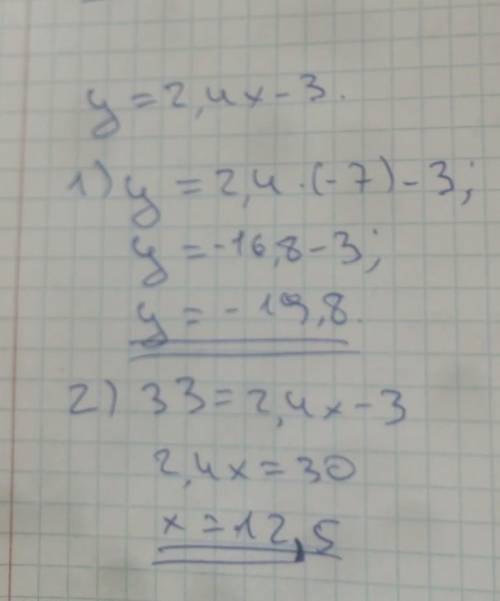 y = 2,4x - 3.
1) y = 2,4 · (-7) - 3;
y = -16,8 - 3;
y = -19,8.
2) 33 = 2,4x - 3
2,4x = 30
x = 12,5